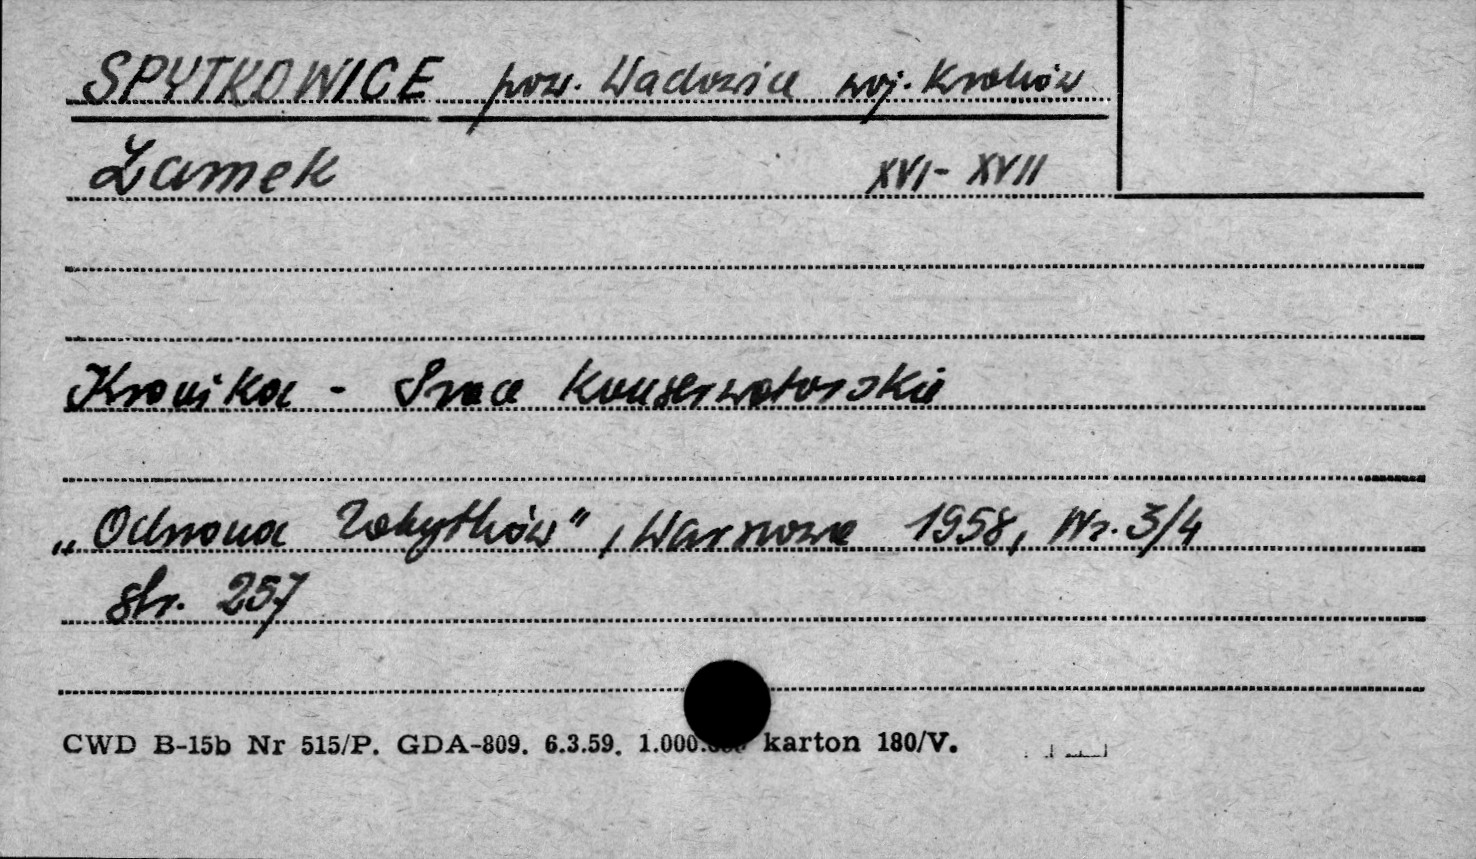 SPYTKOWICE pow. Wadowice woj. Kraków
Zamek XVI - XVII
Kronika - Prace Konserwatorskie
„Ochrona Zabytków", Warszawa 1958, Nr. 3/4
str. 257
CWD B-15b Nr 515/P. GDA-809. 6.3.59. karton 180/V.